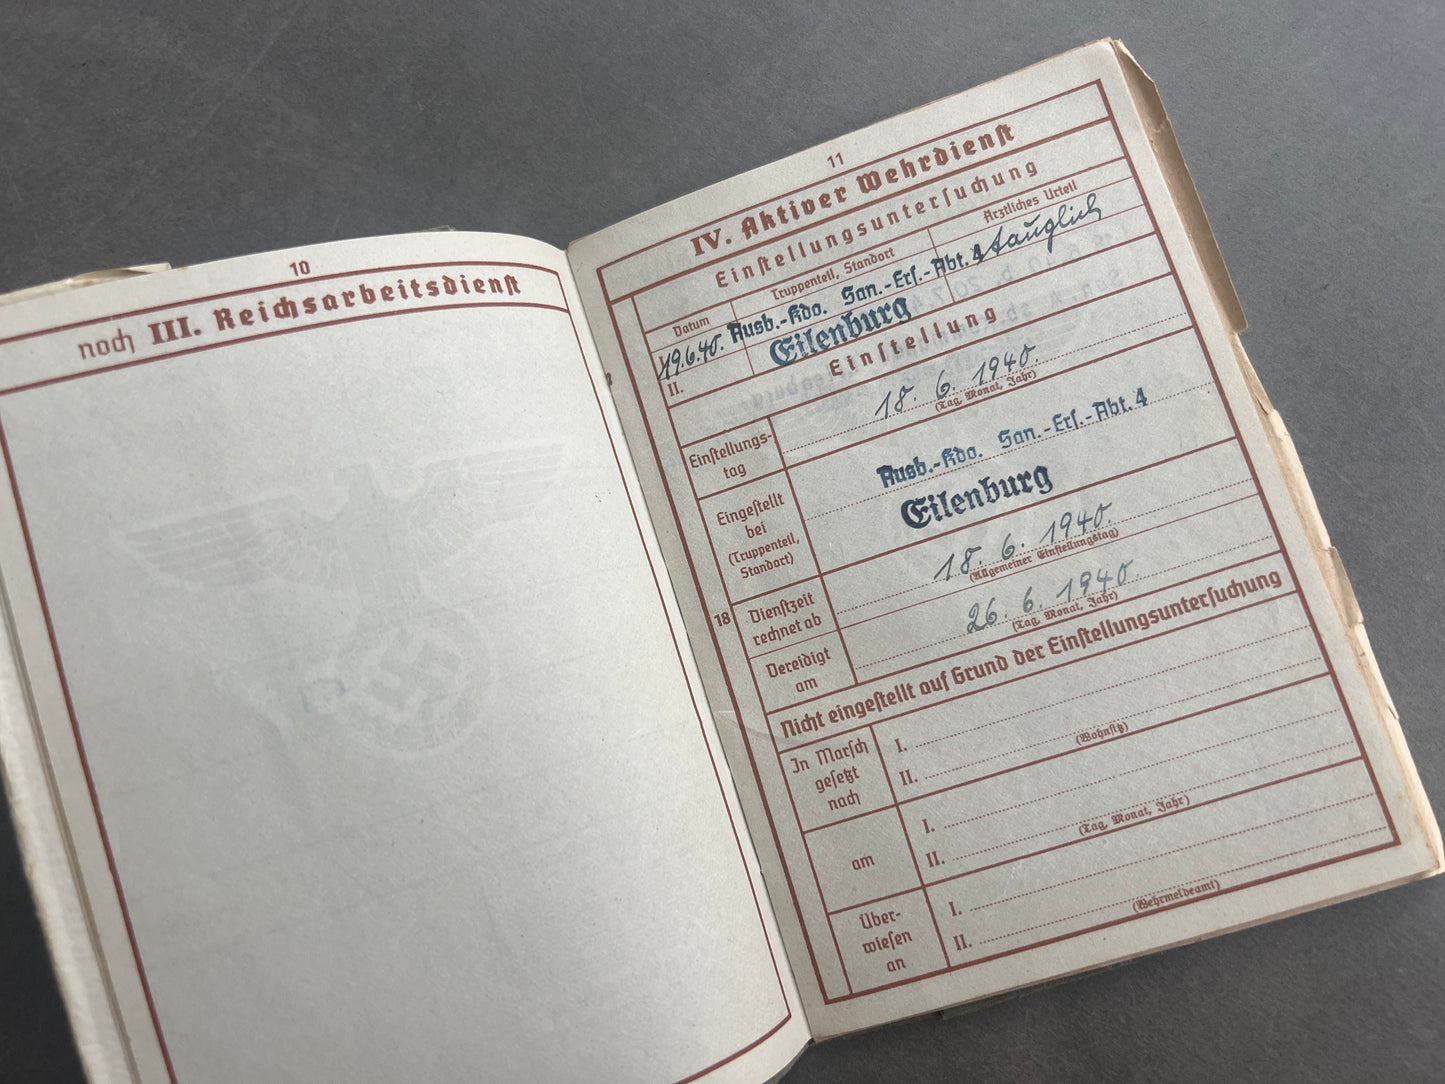 10
noch III. Reichsarbeitsdienst
11
IV. Aktiver Wehrdienst
Einstellungsuntersuchung
Datum
Truppenteil, Standort
Ärztliches Urteil
19.6.40. Ausb.-Kdo. San.-Ers.-Abt. 4 tauglich
Eilenburg
II.
Einstellung
Einstellungs-
tag
18. 6. 1940.
(Tag, Monat, Jahr)
Eingestellt
bei
(Truppenteil,
Standort)
Ausb.-Kdo. San.-Ers.-Abt. 4
Eilenburg
18
Dienstzeit
rechnet ab
18. 6. 1940.
(Allgemeiner Einstellungstag)
Vereidigt
am
26. 6. 1940.
(Tag, Monat, Jahr)
Nicht eingestellt auf Grund der Einstellungsuntersuchung
In Marsch
gesetzt
nach
I.
(Wohnsitz)
II.
am
I.
(Tag, Monat, Jahr)
II.
Über-
wiesen
an
I.
(Wehrmeldeamt)
II.